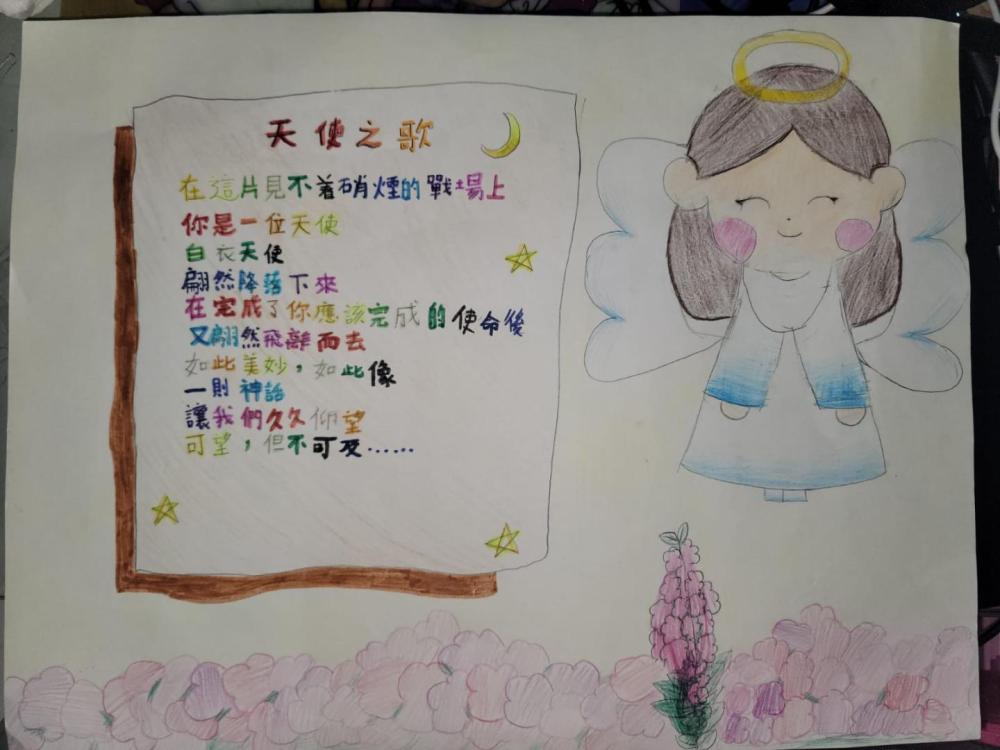 天使之歌
在這片見不着硝煙的戰場上
你是一位天使
白衣天使
翩然降落下來
在完成了你應該完成的使命後
又翩然飛離而去
如此美妙，如此像
一則神話
讓我們久久仰望
可望，但不可及……